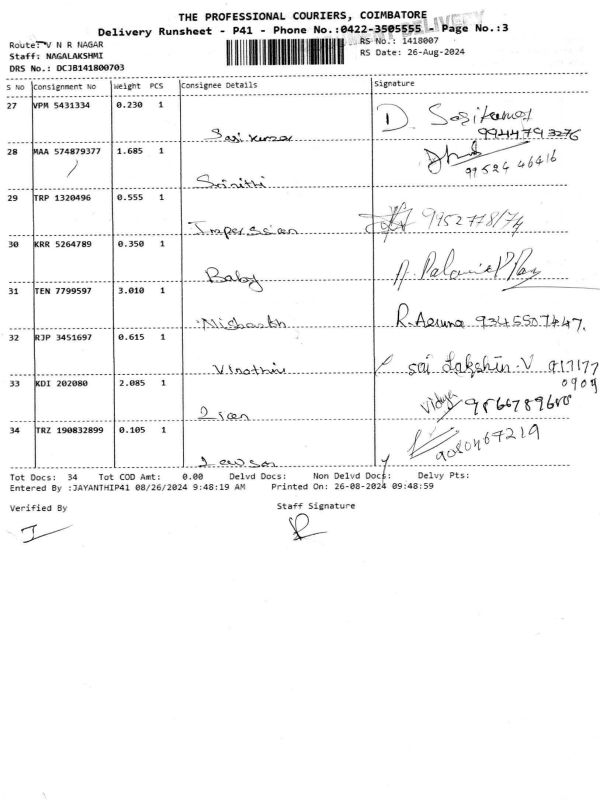 THE PROFESSIONAL COURIERS, COIMBATORE
Delivery Runsheet - P41 - Phone No.:0422-3505555 - Page No.:3
DELIVERY
Route: V N R NAGAR RS No.: 1418007
Staff: NAGALAKSHMI RS Date: 26-Aug-2024
DRS No.: DCJB141800703
S No Consignment No Weight PCS Consignee Details Signature
27 VPM 5431334 0.230 1 Sasi kumar D. Sasikumar
9944793276
28 MAA 574879377 1.685 1 Srinithi
99524 46416
29 TRP 1320496 0.555 1 9952778174
30 KRR 5264789 0.350 1 Baby
31 TEN 7799597 3.010 1 R. Aruna 9345507447.
32 RJP 3451697 0.615 1 sai Lakshmi. V 917177
0909
33 KDI 202080 2.085 1 Vidya
34 TRZ 190832899 0.105 1 9080467219
Tot Docs: 34 Tot COD Amt: 0.00 Delvd Docs: Non Delvd Docs: Delvy Pts:
Entered By :JAYANTHIP41 08/26/2024 9:48:19 AM Printed On: 26-08-2024 09:48:59
Verified By Staff Signature